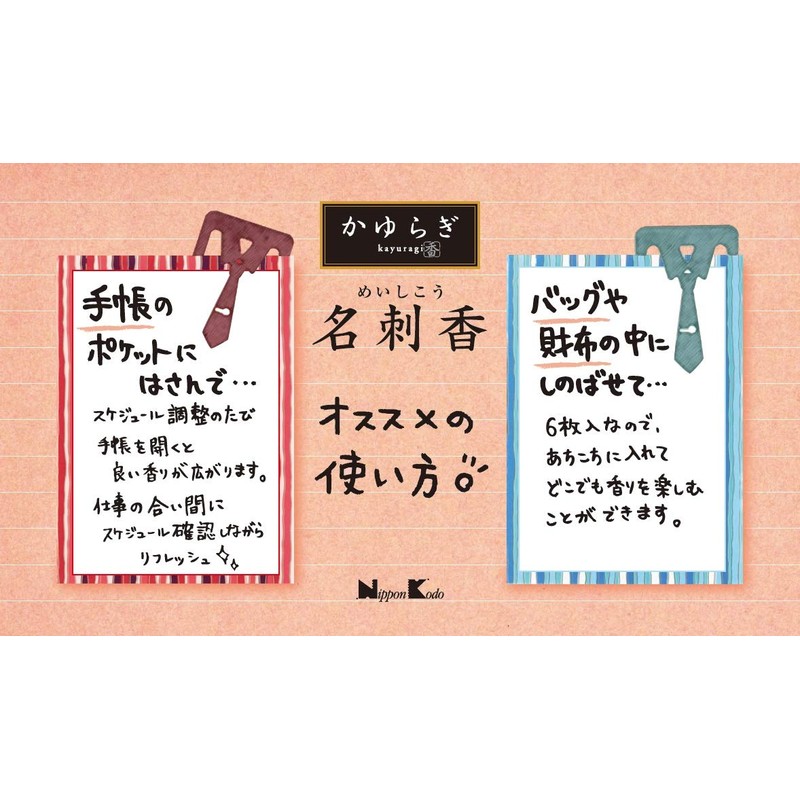 かゆらぎ
kayuragi 香
めいしこう
名刺香
オススメの
使い方
手帳の
ポケットに
はさんで…
スケジュール調整のたび
手帳を開くと
良い香りが広がります。
仕事の合い間に
スケジュール確認しながら
リフレッシュ
バッグや
財布の中に
しのばせて…
6枚入なので、
あちこちに入れて
どこでも香りを楽しむ
ことができます。
Nippon Kodo